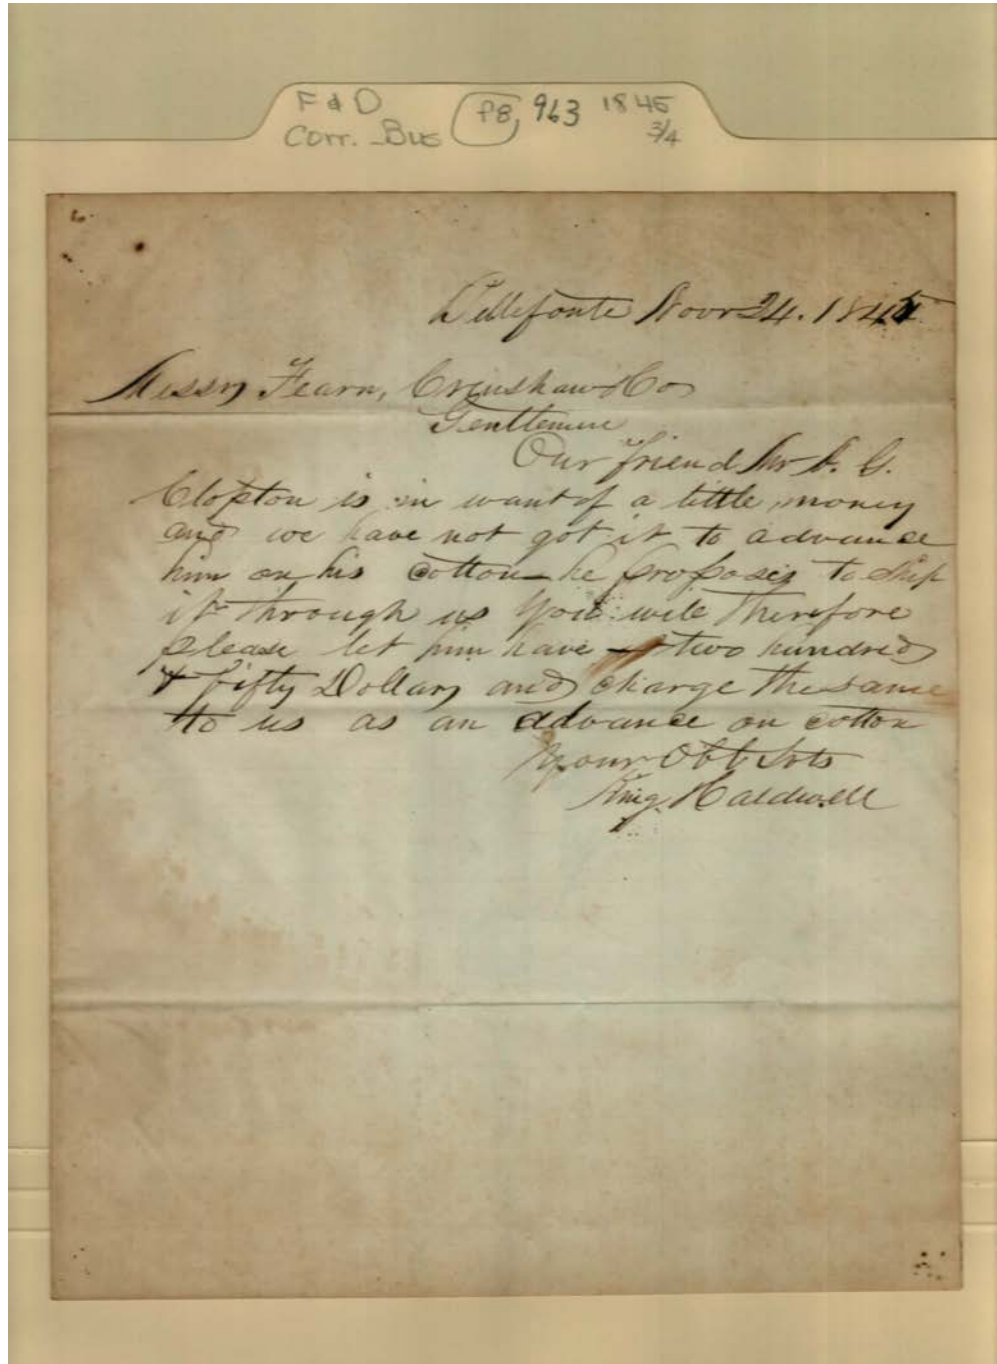 F & D
Corr. Bus P8, 963 1845
3/4
Bellefonte Novr 24. 1845
Messrs Fearn, Crenshaw & Co
Gentlemen
Our friend Mr G.
Clopton is in want of a little money
and we have not got it to advance
him on his cotton he proposes to ship
it through us You will therefore
please let him have two hundred
& fifty Dollars and charge the same
to us as an advance on cotton
Your Obt Svts
King & Caldwell